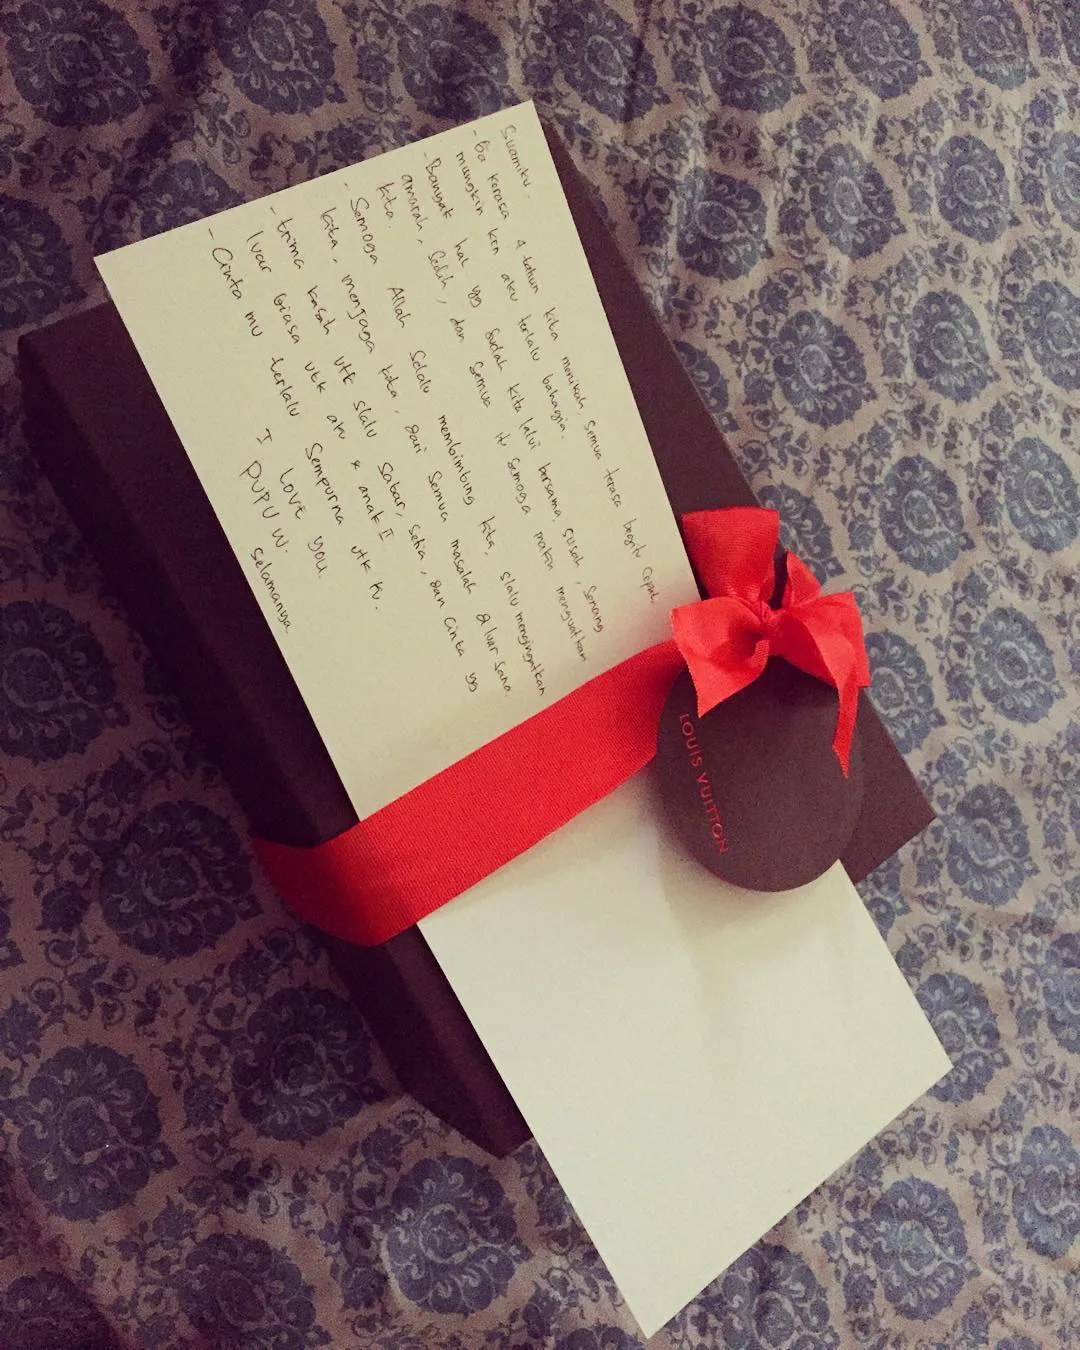 Suamiku.
- Ga kerasa 4 tahun kita menikah. Semua terasa begitu cepat,
mungkin krn aku terlalu bahagia.
- Banyak hal yg sudah kita lalui bersama. susah, senang
amarah, sedih, dan semua itu semoga makin menguatkan
kita.
- Semoga Allah selalu membimbing kita, slalu mengingatkan
kita, menjaga kita, dari semua masalah diluar sana
- trima kasih utk slalu sabar, setia, dan cinta yg
luar biasa utk aku & anak II.
- Cinta mu terlalu sempurna utk ku.
I Love you.
PUPU W. selamanya
LOUIS VUITTON